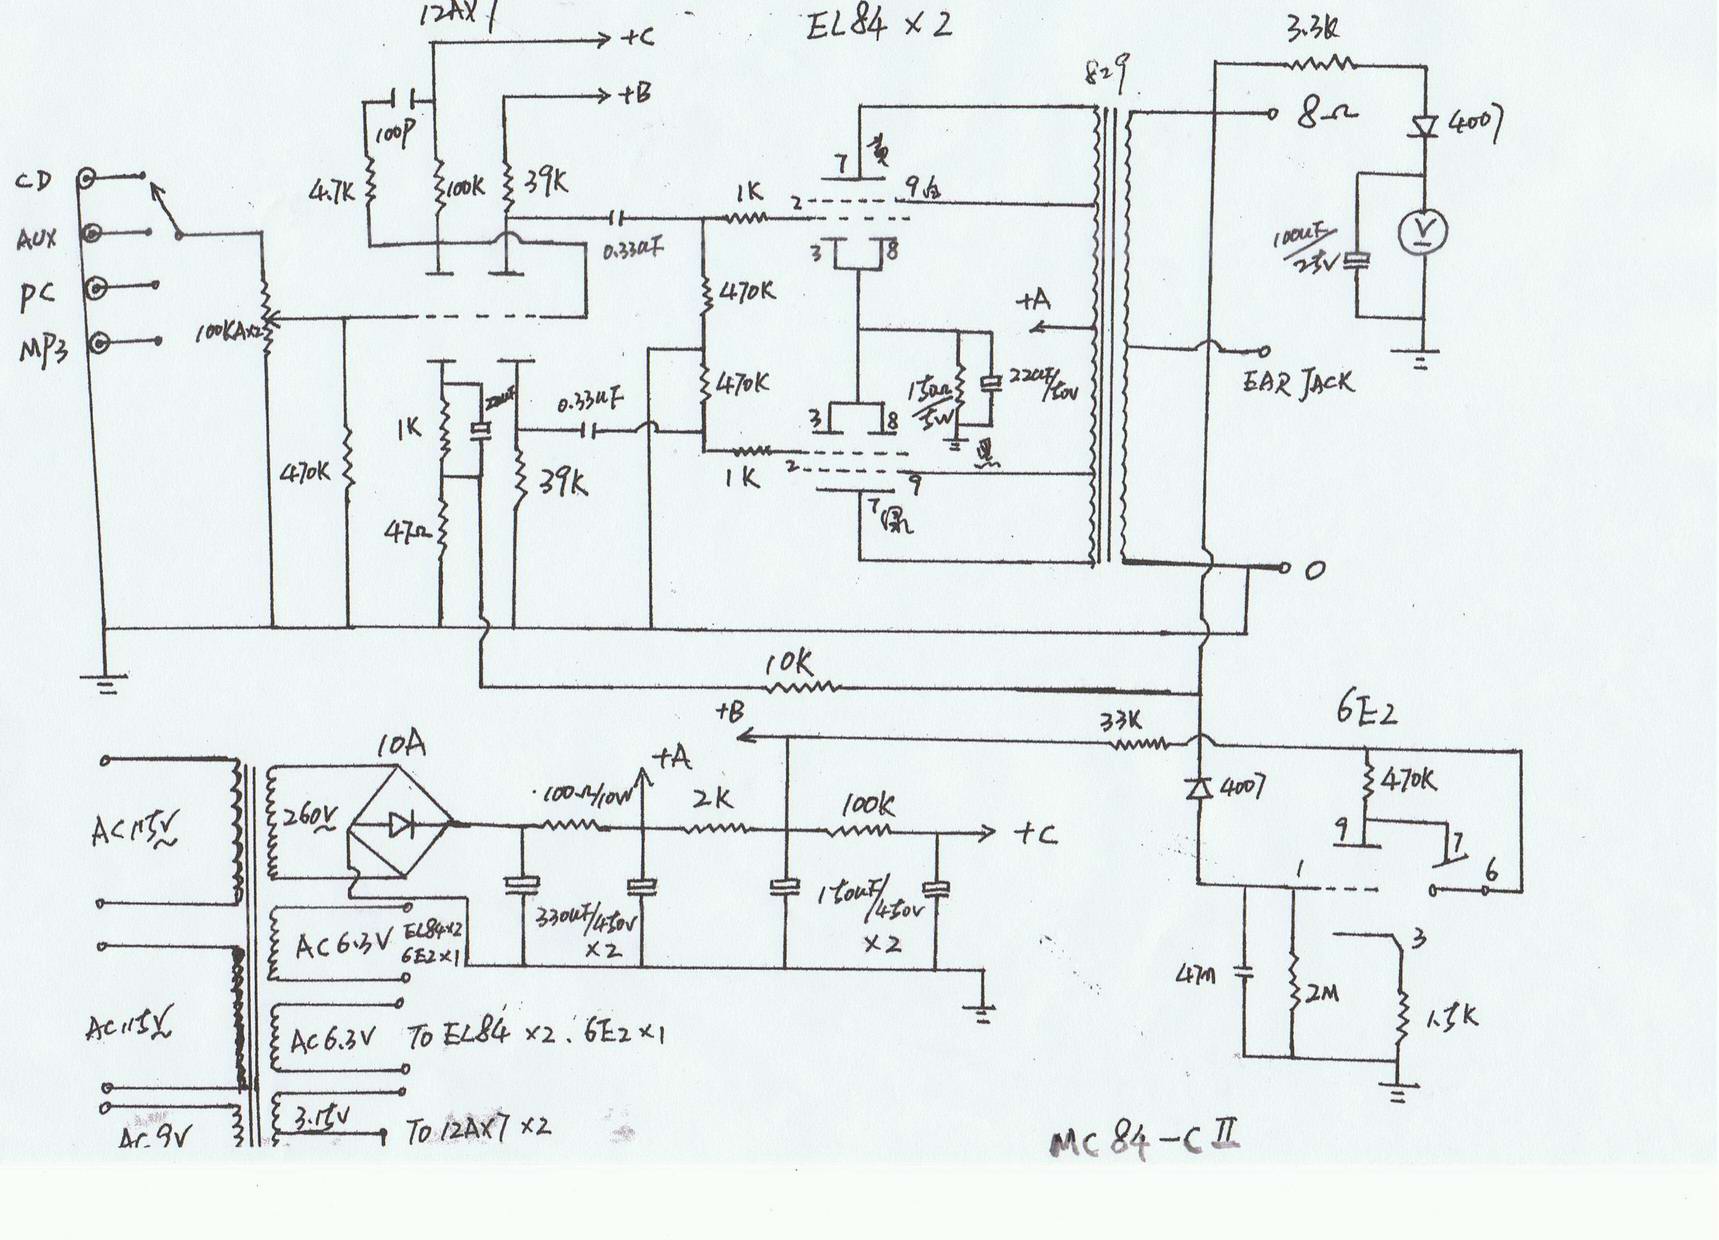 12AX7
EL84 × 2
3.3K
+C
+B
829
8Ω
4007
100P
黄
CD
4.7K
100K
39K
7
1K
2
9白
AUX
0.33uF
3
8
V
100uF/25V
PC
470K
+A
100KA×2
MP3
470K
150Ω/5W
22uF/50V
EAR JACK
22uF
0.33uF
1K
3
8
470K
39K
1K
2
9
黑
47Ω
7
0
10K
+B
33K
6E2
10A
+A
100Ω/10W
2K
100K
4007
470K
AC115V
260V
+C
9
7
1
6
330uF/450V
×2
150uF/450V
×2
AC6.3V
EL84×2
6E2×1
3
47n
2M
1.5K
AC115V
AC6.3V
TO EL84 ×2. 6E2×1
3.15V
TO 12AX7 ×2
AC 9V
MC84-CII